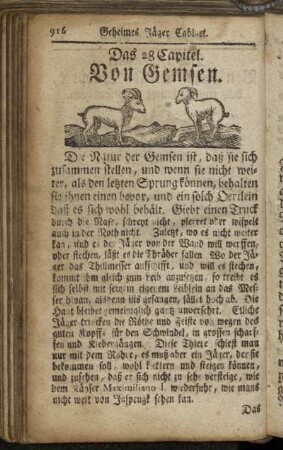 916 Geheimes Jäger Cabinet.
Das 28 Capitel.
Von Gemsen.
Die Natur der Gemsen ist, daß sie sich
zusammen stellen, und wenn sie nicht wei-
ter, als den letzten Sprung können, behalten
sie ihnen einen bevor, und ein solch Oertlein
daß es sich wohl behält. Giebt einen Truck
durch die Nase, schreyt nicht, plerret oder wispelt
auch in der Noth nicht. Zuletzt, wo es nicht weiter
kan, und der Jäger von der Wand will werffen,
oder stechen, läßt es die Thräher fallen Wo der Jä-
ger das Thillmesser und will es stechen,
kommt ihm gleich zum so treibt es
sich selbst mit seinem eigenem Leiblein an das Mes-
ser hinan, alsdenn ists gefangen, fällets hoch ab. Die
Haut bleibet gemeiniglich gantz unversehrt. Etliche
Jäger trincken die Röthe und Feiste von wegen des
guten Kopffs für den Schwindel, in grossen scharf-
fen und Kiebergängen. Diese Thiere schiest man
nur mit dem Rohre, es muß aber ein Jäger, der sie
bekommen soll, wohl klettern und steigen können,
und zusehen, daß er sich nicht zu sehr versteige, wie
dem Käyser Maximiliano I. wiederfuhr, wie mans
nicht weit von Inspruck sehen kan.
Das